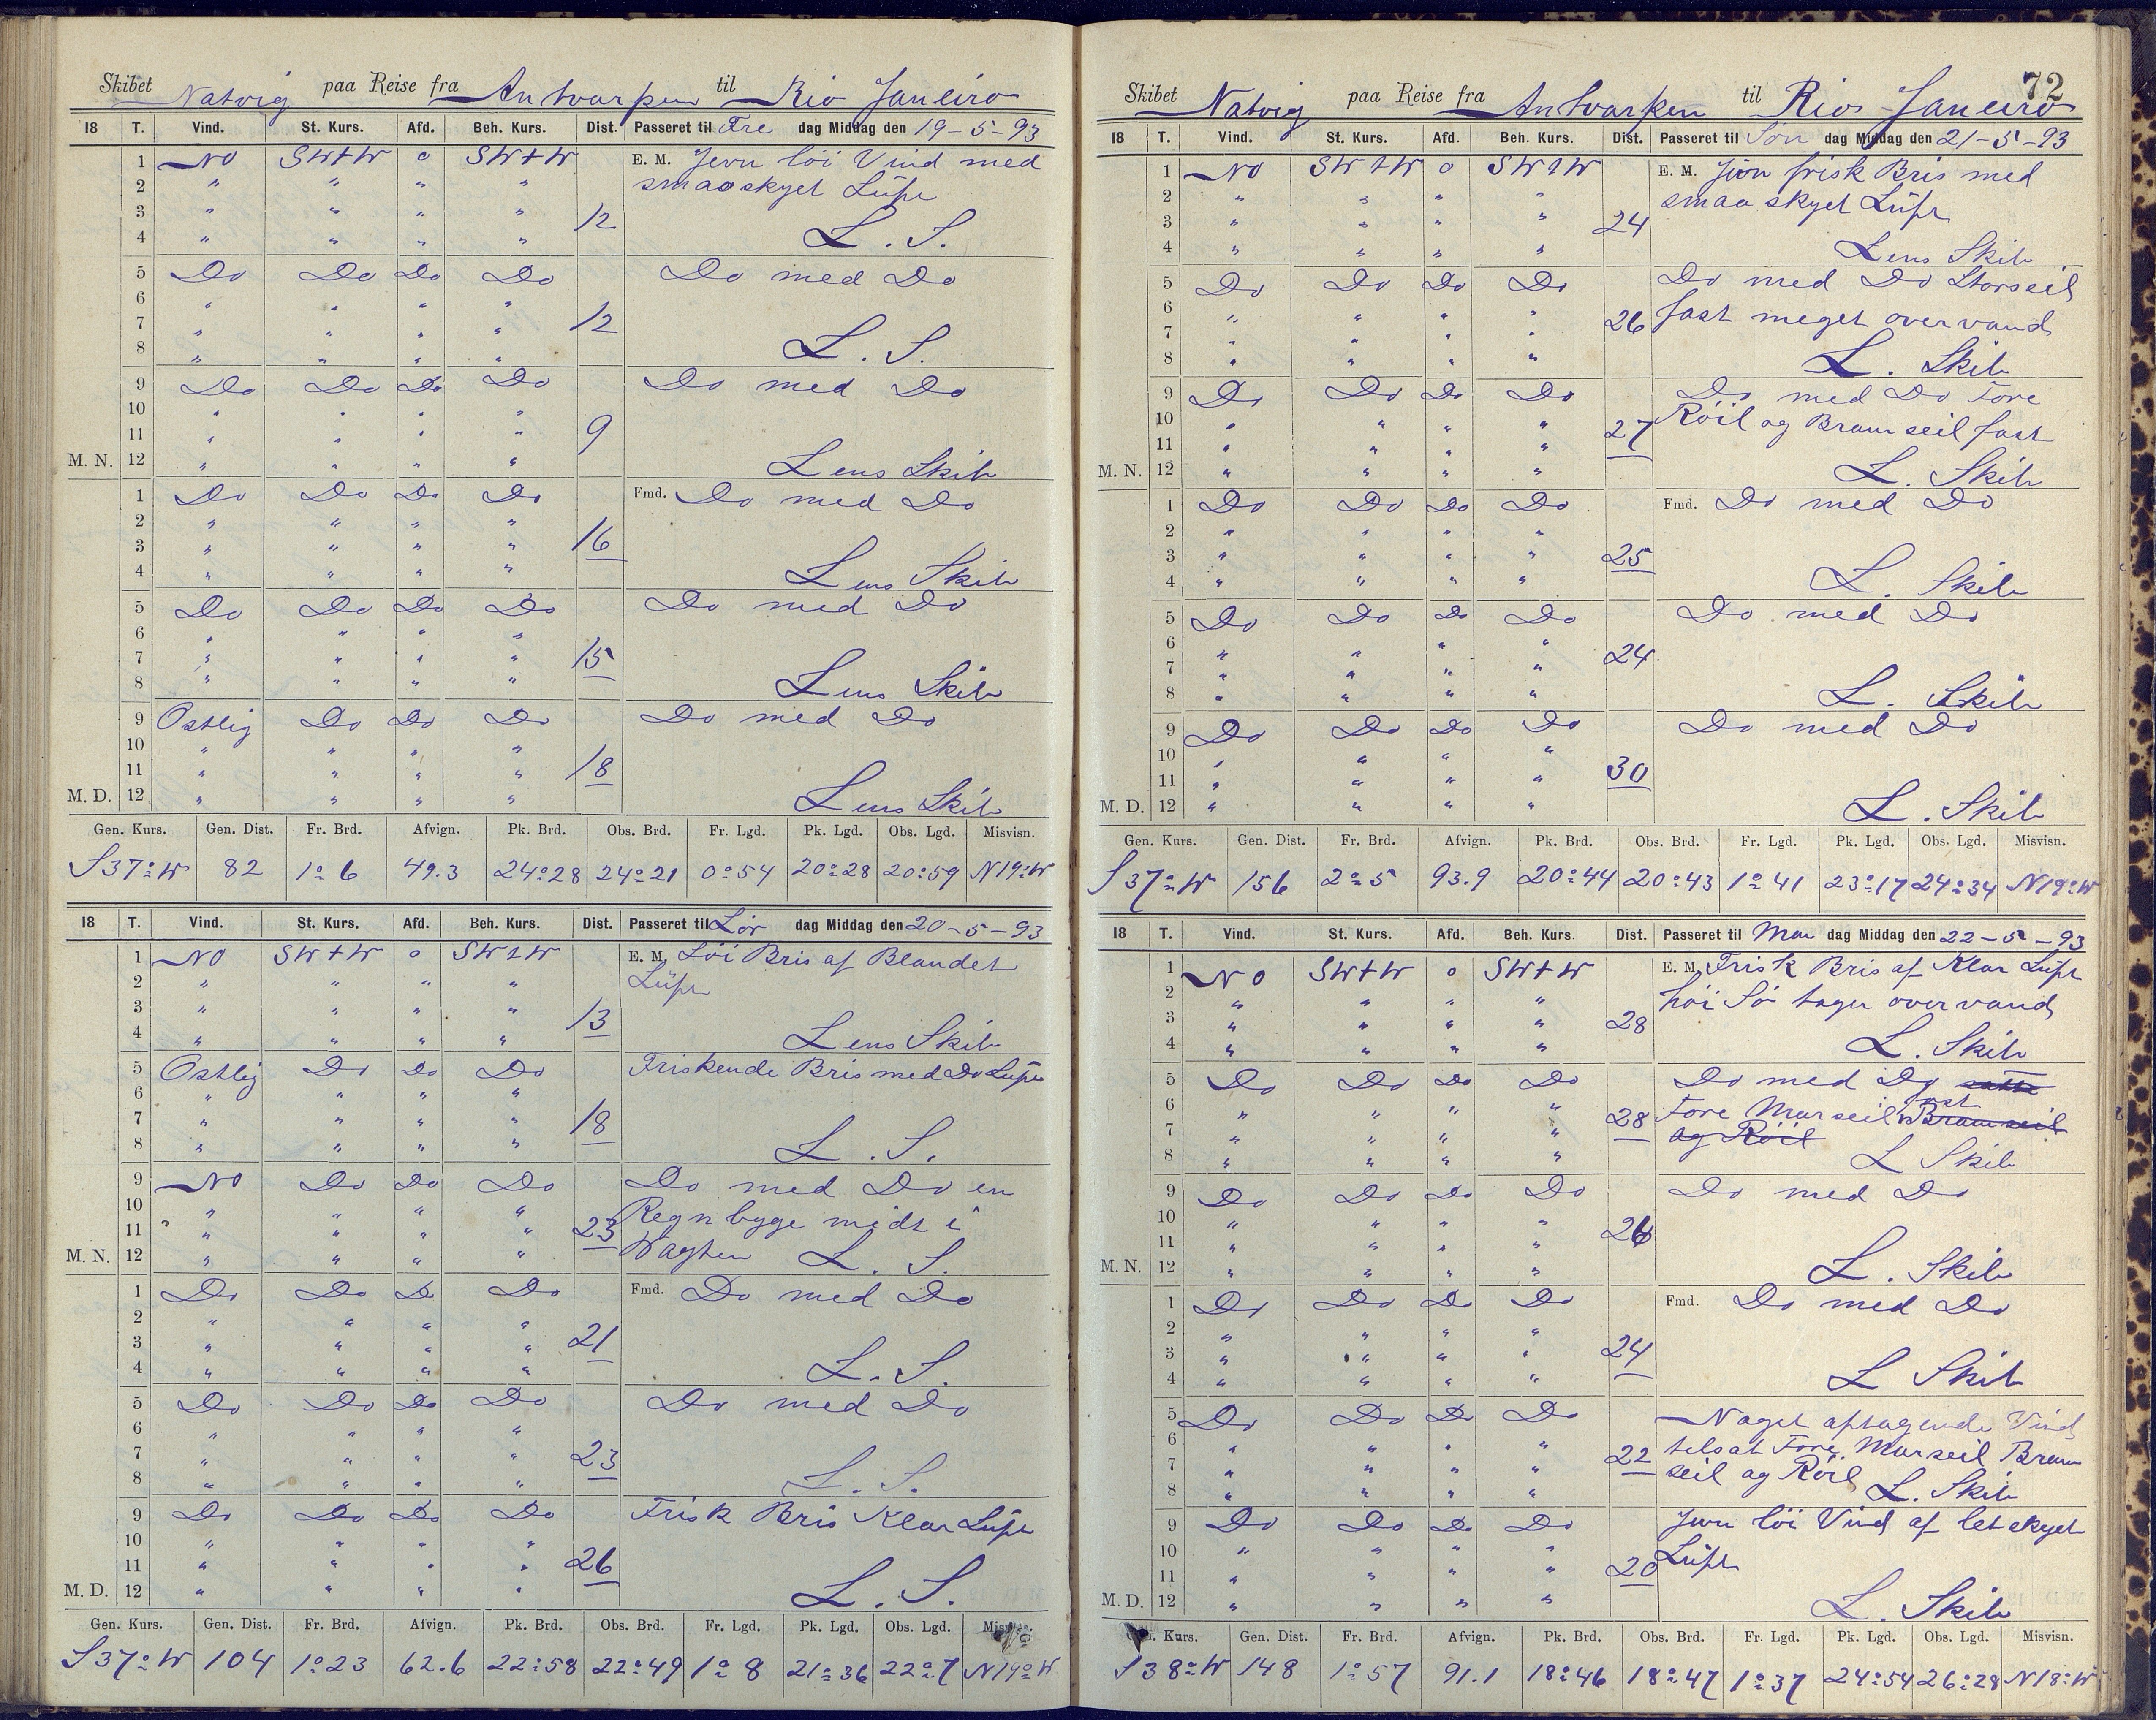 Skibet Natvig paa Reise fra Antvarpen til Rio Janeiro
18 T. Vind. St. Kurs. Afd. Beh. Kurs. Dist. Passeret til Fre dag Middag den 19-5-93
1 NO SWtW o SWtW E. M. Jevn löi Vind med
2 " " " " smaaskyet Lüft
3 " " " " 12
4 " " " " L. S.
5 Do Do Do Do Do med Do
6 " " " "
7 " " " " 12
8 " " " " L. S.
9 Do Do Do Do Do med Do
10 " " " "
11 " " " " 9
M. N. 12 " " " " Lens Skib
1 Do Do Do Do Fmd. Do med Do
2 " " " "
3 " " " " 16
4 " " " " Lens Skib
5 Do Do Do Do Do med Do
6 " " " "
7 " " " " 15
8 " " " " Lens Skib
9 Ostlig Do Do Do Do med Do
10 " " " "
11 " " " " 18
M. D. 12 " " " " Lens Skib
Gen. Kurs. Gen. Dist. Fr. Brd. Afvign. Pk. Brd. Obs. Brd. Fr. Lgd. Pk. Lgd. Obs. Lgd. Misvisn.
S37°W 82 1°6 49.3 24°28 24°21 0°54 20°28 20°59 N19°W
18 T. Vind. St. Kurs. Afd. Beh. Kurs. Dist. Passeret til Lör dag Middag den 20-5-93
1 NO SWtW o SWtW E. M. Löi Bris af Blandet
2 " " " " Lüft
3 " " " " 13
4 " " " " Lens Skib
5 Ostlig Do Do Do Friskende Bris med Do Lüft
6 " " " "
7 " " " " 18
8 " " " " L. S.
9 NO Do Do Do Do med Do en
10 " " " " Regnbyge midt i
11 " " " " 23
M. N. 12 " " " " Wagten L. S.
1 Do Do Do Do Fmd. Do med Do
2 " " " "
3 " " " " 21
4 " " " " L. S.
5 Do Do Do Do Do med Do
6 " " " "
7 " " " " 23
8 " " " " L. S.
9 Do Do Do Do Frisk Bris Klar Lüft
10 " " " "
11 " " " " 26
M. D. 12 " " " " L. S.
Gen. Kurs. Gen. Dist. Fr. Brd. Afvign. Pk. Brd. Obs. Brd. Fr. Lgd. Pk. Lgd. Obs. Lgd.
S37°W 104 1°23 62.6 22°58 22°49 1°8 21°36 22°7 N19°W
72
Skibet Natvig paa Reise fra Antvarpen til Rio Janeiro
18 T. Vind. St. Kurs. Afd. Beh. Kurs. Dist. Passeret til Søn dag Middag den 21-5-93
1 NO SWtW o SWtW E. M. Jevn frisk Bris med
2 " " " " smaa skyet Lüft
3 " " " " 24
4 " " " " Lens Skib
5 Do Do Do Do Do med Do Storseil
6 " " " " 26 fast meget overvand
7 " " " "
8 " " " " L. Skib
9 Do Do Do Do Do med Do Fore
10 " " " " 27 Röil og Bramseil fast
11 " " " "
M. N. 12 " " " " L. Skib
1 Do Do Do Do Fmd. Do med Do
2 " " " "
3 " " " " 25
4 " " " " L. Skib
5 Do Do Do Do Do med Do
6 " " " "
7 " " " " 24
8 " " " " L. Skib
9 Do Do Do Do Do med Do
10 " " " "
11 " " " " 30
M. D. 12 " " " " L. Skib
Gen. Kurs. Gen. Dist. Fr. Brd. Afvign. Pk. Brd. Obs. Brd. Fr. Lgd. Pk. Lgd. Obs. Lgd. Misvisn.
S37°W 156 2°5 93.9 20°44 20°43 1°41 23°17 24°34 N19°W
18 T. Vind. St. Kurs. Afd. Beh. Kurs. Dist. Passeret til Man dag Middag den 22-5-93
1 NO SWtW o SWtW E. M. Frisk Bris af Klar Lüft
2 " " " " höi Sö tager overvand
3 " " " " 28
4 " " " " L. Skib
5 Do Do Do Do Do med Do
6 " " " " 28 Fore Marseil fast Bramseil
7 " " " " og Röil
8 " " " " L Skib
9 Do Do Do Do Do med Do
10 " " " "
11 " " " " 26
M. N. 12 " " " " L. Skib
1 Do Do Do Do Fmd. Do med Do
2 " " " "
3 " " " " 24
4 " " " " L Skib
5 Do Do Do Do Noget aftagende Vind
6 " " " " 22 tilsat Fore Marseil Bram
7 " " " " seil og Röil
8 " " " " L. Skib
9 Do Do Do Do Jevn löi Vind af letskyet
10 " " " " Lüft
11 " " " " 20
M. D. 12 " " " " L. Skib
Kurs. Gen. Dist. Fr. Brd. Afvign. Pk. Brd. Obs. Brd. Fr. Lgd. Pk. Lgd. Obs. Lgd. Misvisn.
S38°W 148 1°57 91.1 18°46 18°47 1°37 24°54 26°28 N18°W